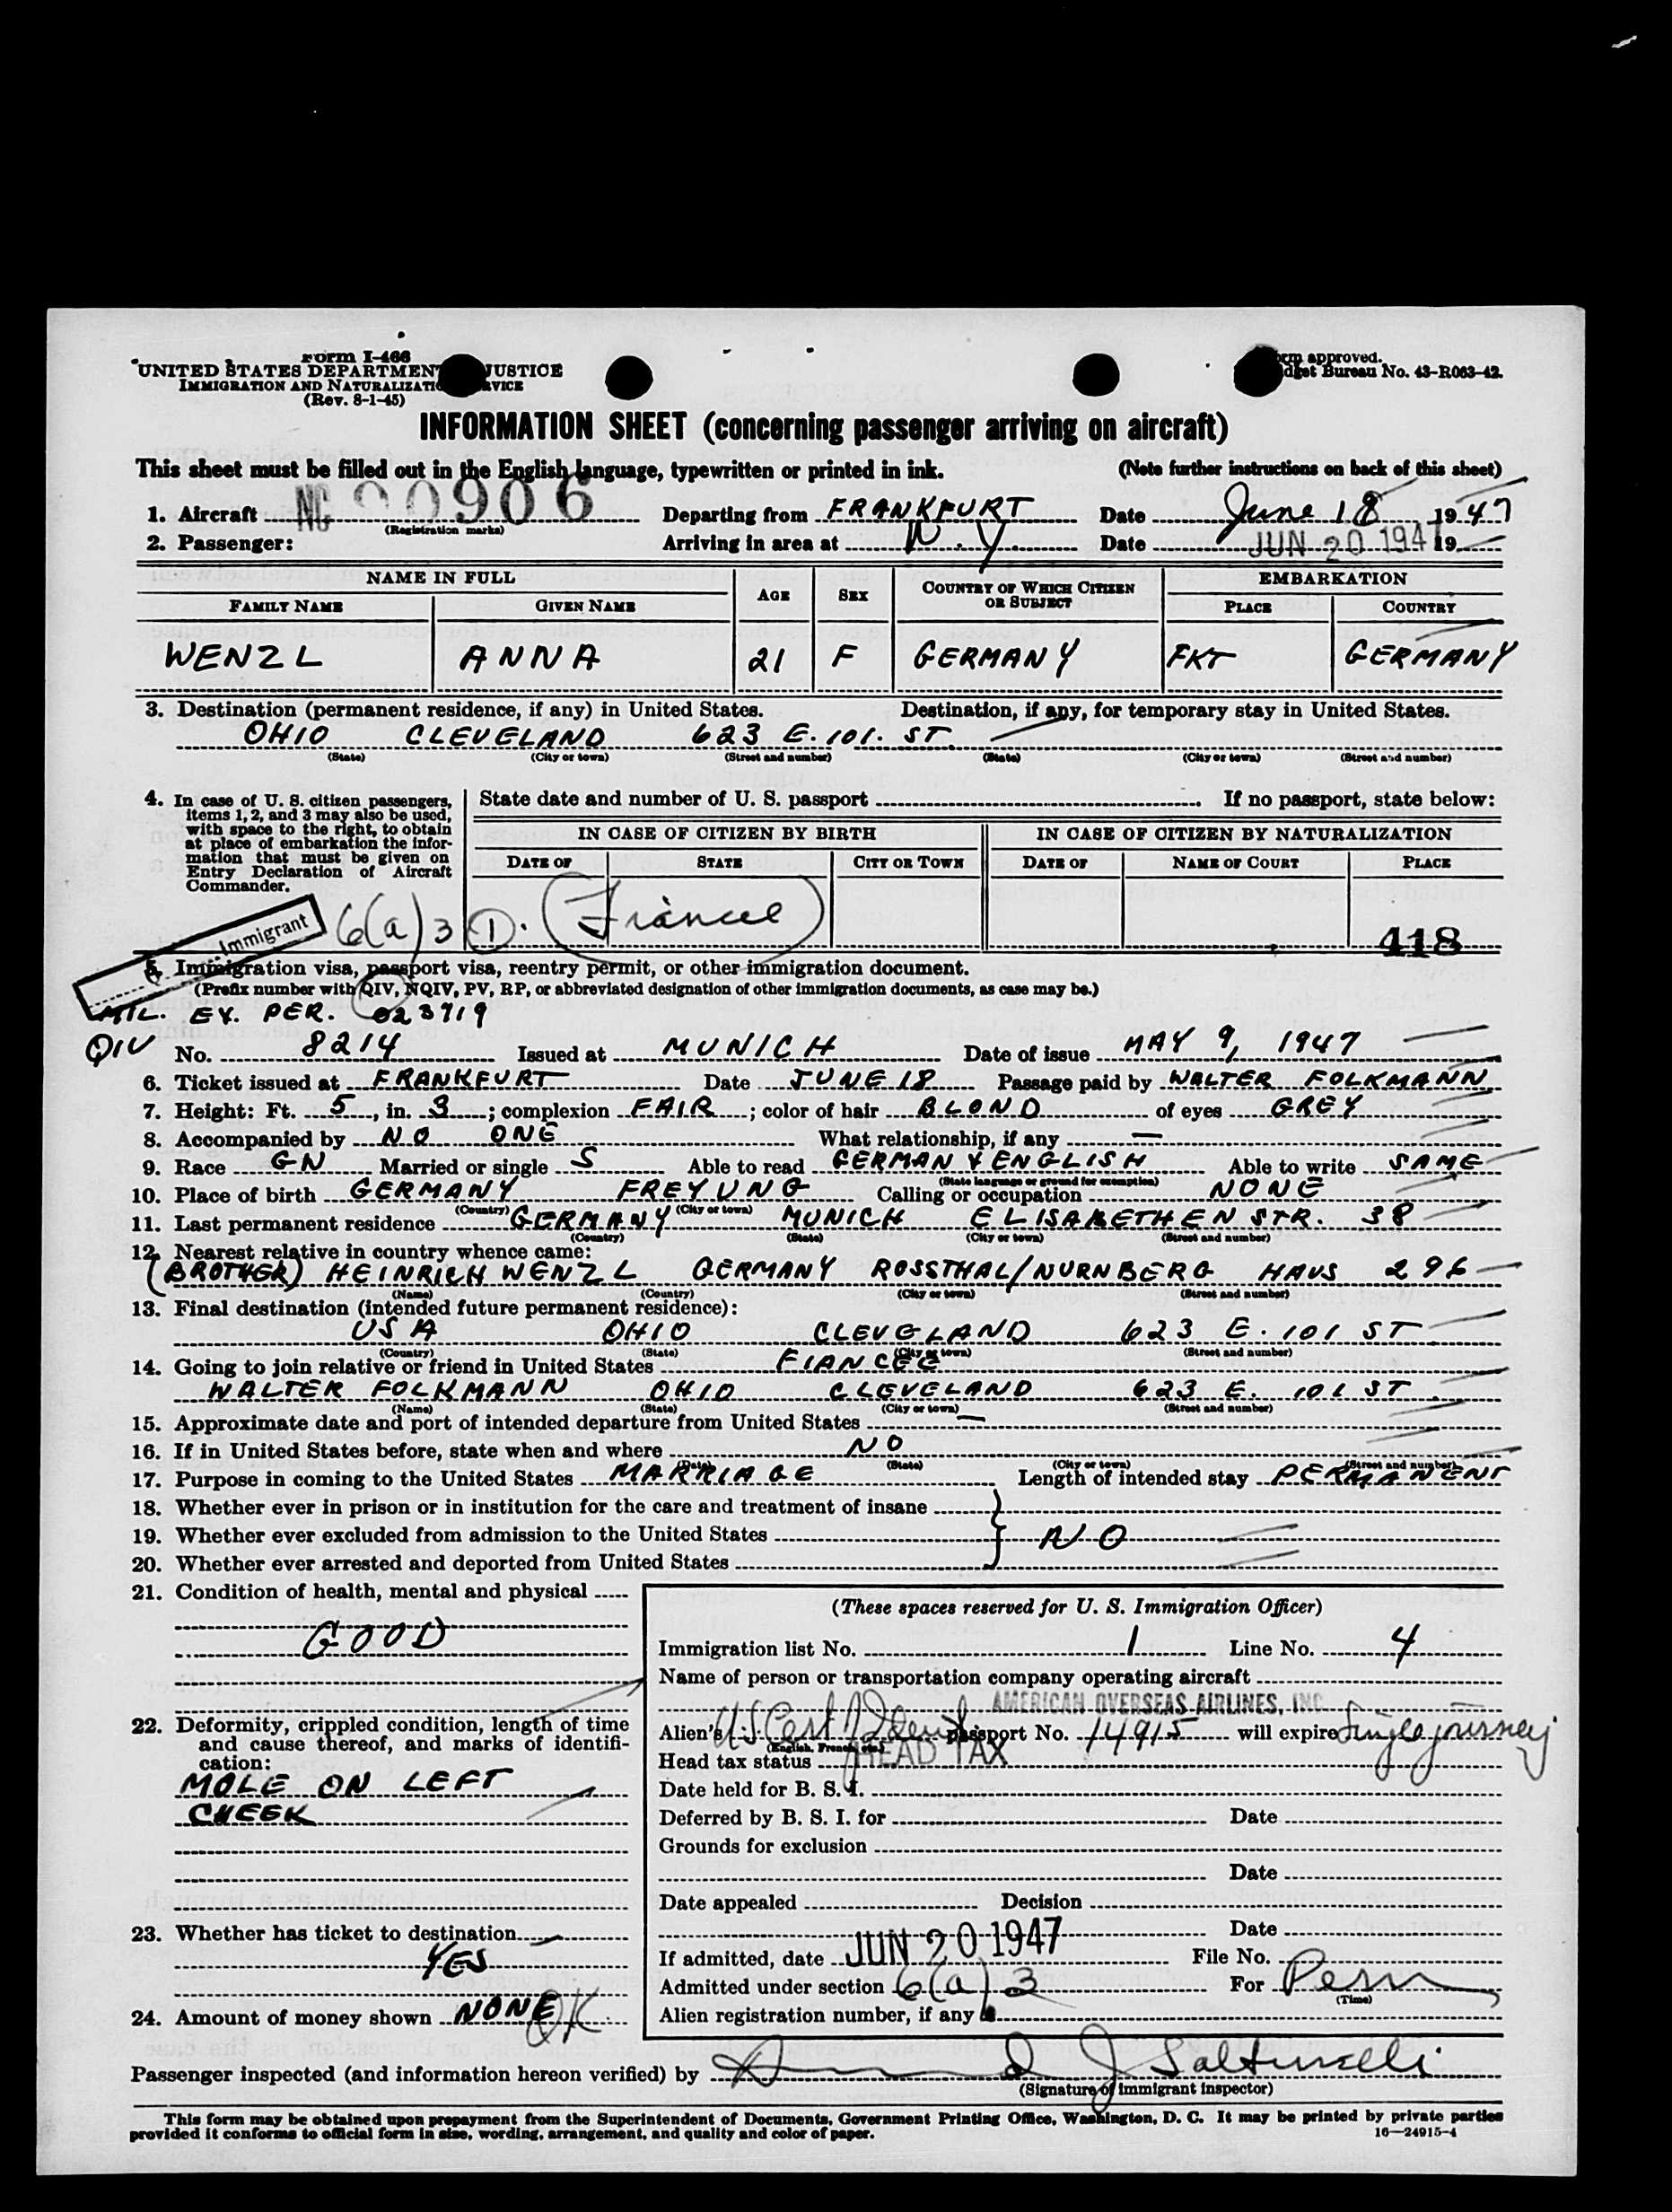 Form I-466
UNITED STATES DEPARTMENT JUSTICE
IMMIGRATION AND NATURALIZATION SERVICE
(Rev. 8-1-45)
Form approved.
Budget Bureau No. 43-R063-42.
INFORMATION SHEET (concerning passenger arriving on aircraft)
This sheet must be filled out in the English language, typewritten or printed in ink. (Note further instructions on back of this sheet)
1. Aircraft NC 90906 Departing from FRANKFURT Date June 18 1947
(Registration marks)
2. Passenger: Arriving in area at N.Y. Date JUN 20 1947 19
NAME IN FULL AGE SEX COUNTRY OF WHICH CITIZEN OR SUBJECT EMBARKATION
FAMILY NAME GIVEN NAME PLACE COUNTRY
WENZL ANNA 21 F GERMANY FKT GERMANY
3. Destination (permanent residence, if any) in United States. Destination, if any, for temporary stay in United States.
OHIO CLEVELAND 623 E. 101. ST.
(State) (City or town) (Street and number) (State) (City or town) (Street and number)
4. In case of U. S. citizen passengers, items 1, 2, and 3 may also be used, with space to the right, to obtain at place of embarkation the information that must be given on Entry Declaration of Aircraft Commander.
State date and number of U. S. passport If no passport, state below:
IN CASE OF CITIZEN BY BIRTH IN CASE OF CITIZEN BY NATURALIZATION
DATE OF STATE CITY OR TOWN DATE OF NAME OF COURT PLACE
Immigrant 6(a)3 (1). (Fiancee) 418
5. Immigration visa, passport visa, reentry permit, or other immigration document.
(Prefix number with QIV, NQIV, PV, RP, or abbreviated designation of other immigration documents, as case may be.)
MIL. EX. PER. 023719
QIV No. 8214 Issued at MUNICH Date of issue MAY 9, 1947
6. Ticket issued at FRANKFURT Date JUNE 18 Passage paid by WALTER FOLKMANN
7. Height: Ft. 5, in. 3; complexion FAIR; color of hair BLOND of eyes GREY
8. Accompanied by NO ONE What relationship, if any —
9. Race GN Married or single S Able to read GERMAN & ENGLISH Able to write SAME
(State language or ground for exemption)
10. Place of birth GERMANY FREYUNG Calling or occupation NONE
(Country) (City or town)
11. Last permanent residence GERMANY MUNICH ELISABETHENSTR. 38
(Country) (State) (City or town) (Street and number)
12. Nearest relative in country whence came:
(BROTHER) HEINRICH WENZL GERMANY ROSSTHAL/NURNBERG HAUS 296
(Name) (Country) (City or town) (Street and number)
13. Final destination (intended future permanent residence):
USA OHIO CLEVELAND 623 E. 101 ST
(Country) (State) (City or town) (Street and number)
14. Going to join relative or friend in United States FIANCEE
WALTER FOLKMANN OHIO CLEVELAND 623 E. 101 ST.
(Name) (State) (City or town) (Street and number)
15. Approximate date and port of intended departure from United States —
16. If in United States before, state when and where NO
(Date) (State) (City or town) (Street and number)
17. Purpose in coming to the United States MARRIAGE Length of intended stay PERMANENT
18. Whether ever in prison or in institution for the care and treatment of insane
19. Whether ever excluded from admission to the United States } NO
20. Whether ever arrested and deported from United States
21. Condition of health, mental and physical
GOOD
22. Deformity, crippled condition, length of time and cause thereof, and marks of identification:
MOLE ON LEFT
CHEEK
23. Whether has ticket to destination
YES
24. Amount of money shown NONE OK
(These spaces reserved for U. S. Immigration Officer)
Immigration list No. 1 Line No. 4
Name of person or transportation company operating aircraft
AMERICAN OVERSEAS AIRLINES, INC
Alien's US Cert Ident passport No. 14915 will expire Single journey
(English, French, etc.)
Head tax status HEAD TAX
Date held for B. S. I.
Deferred by B. S. I. for Date
Grounds for exclusion
Date
Date appealed Decision
Date
If admitted, date JUN 20 1947 File No.
Admitted under section 6(a)3 For Perm
(Time)
Alien registration number, if any
Passenger inspected (and information hereon verified) by
(Signature of immigrant inspector)
This form may be obtained upon prepayment from the Superintendent of Documents, Government Printing Office, Washington, D. C. It may be printed by private parties
provided it conforms to official form in size, wording, arrangement, and quality and color of paper. 16—24915-4